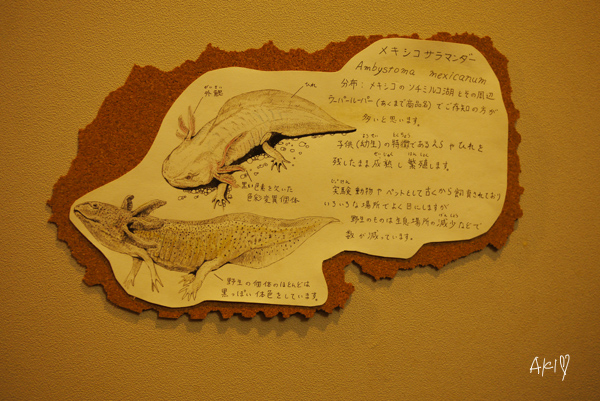 メキシコサラマンダー
Ambystoma mexicanum
分布：メキシコのソチミルコ湖とその周辺
ウーパールーパー(あくまで商品名)でご存知の方が
多いと思います。
子供(幼生)の特徴であるえらやひれを
残したまま成熟し繁殖します。
実験動物やペットとして古くから飼育されており
いろいろな場所でよく目にしますが
野生のものは生息場所の減少などで
数が減っています。
外鰓
ひれ
黒い色素を欠いた
色彩変異個体
野生の個体のほとんどは
黒っぽい体色をしています。
AKI♡